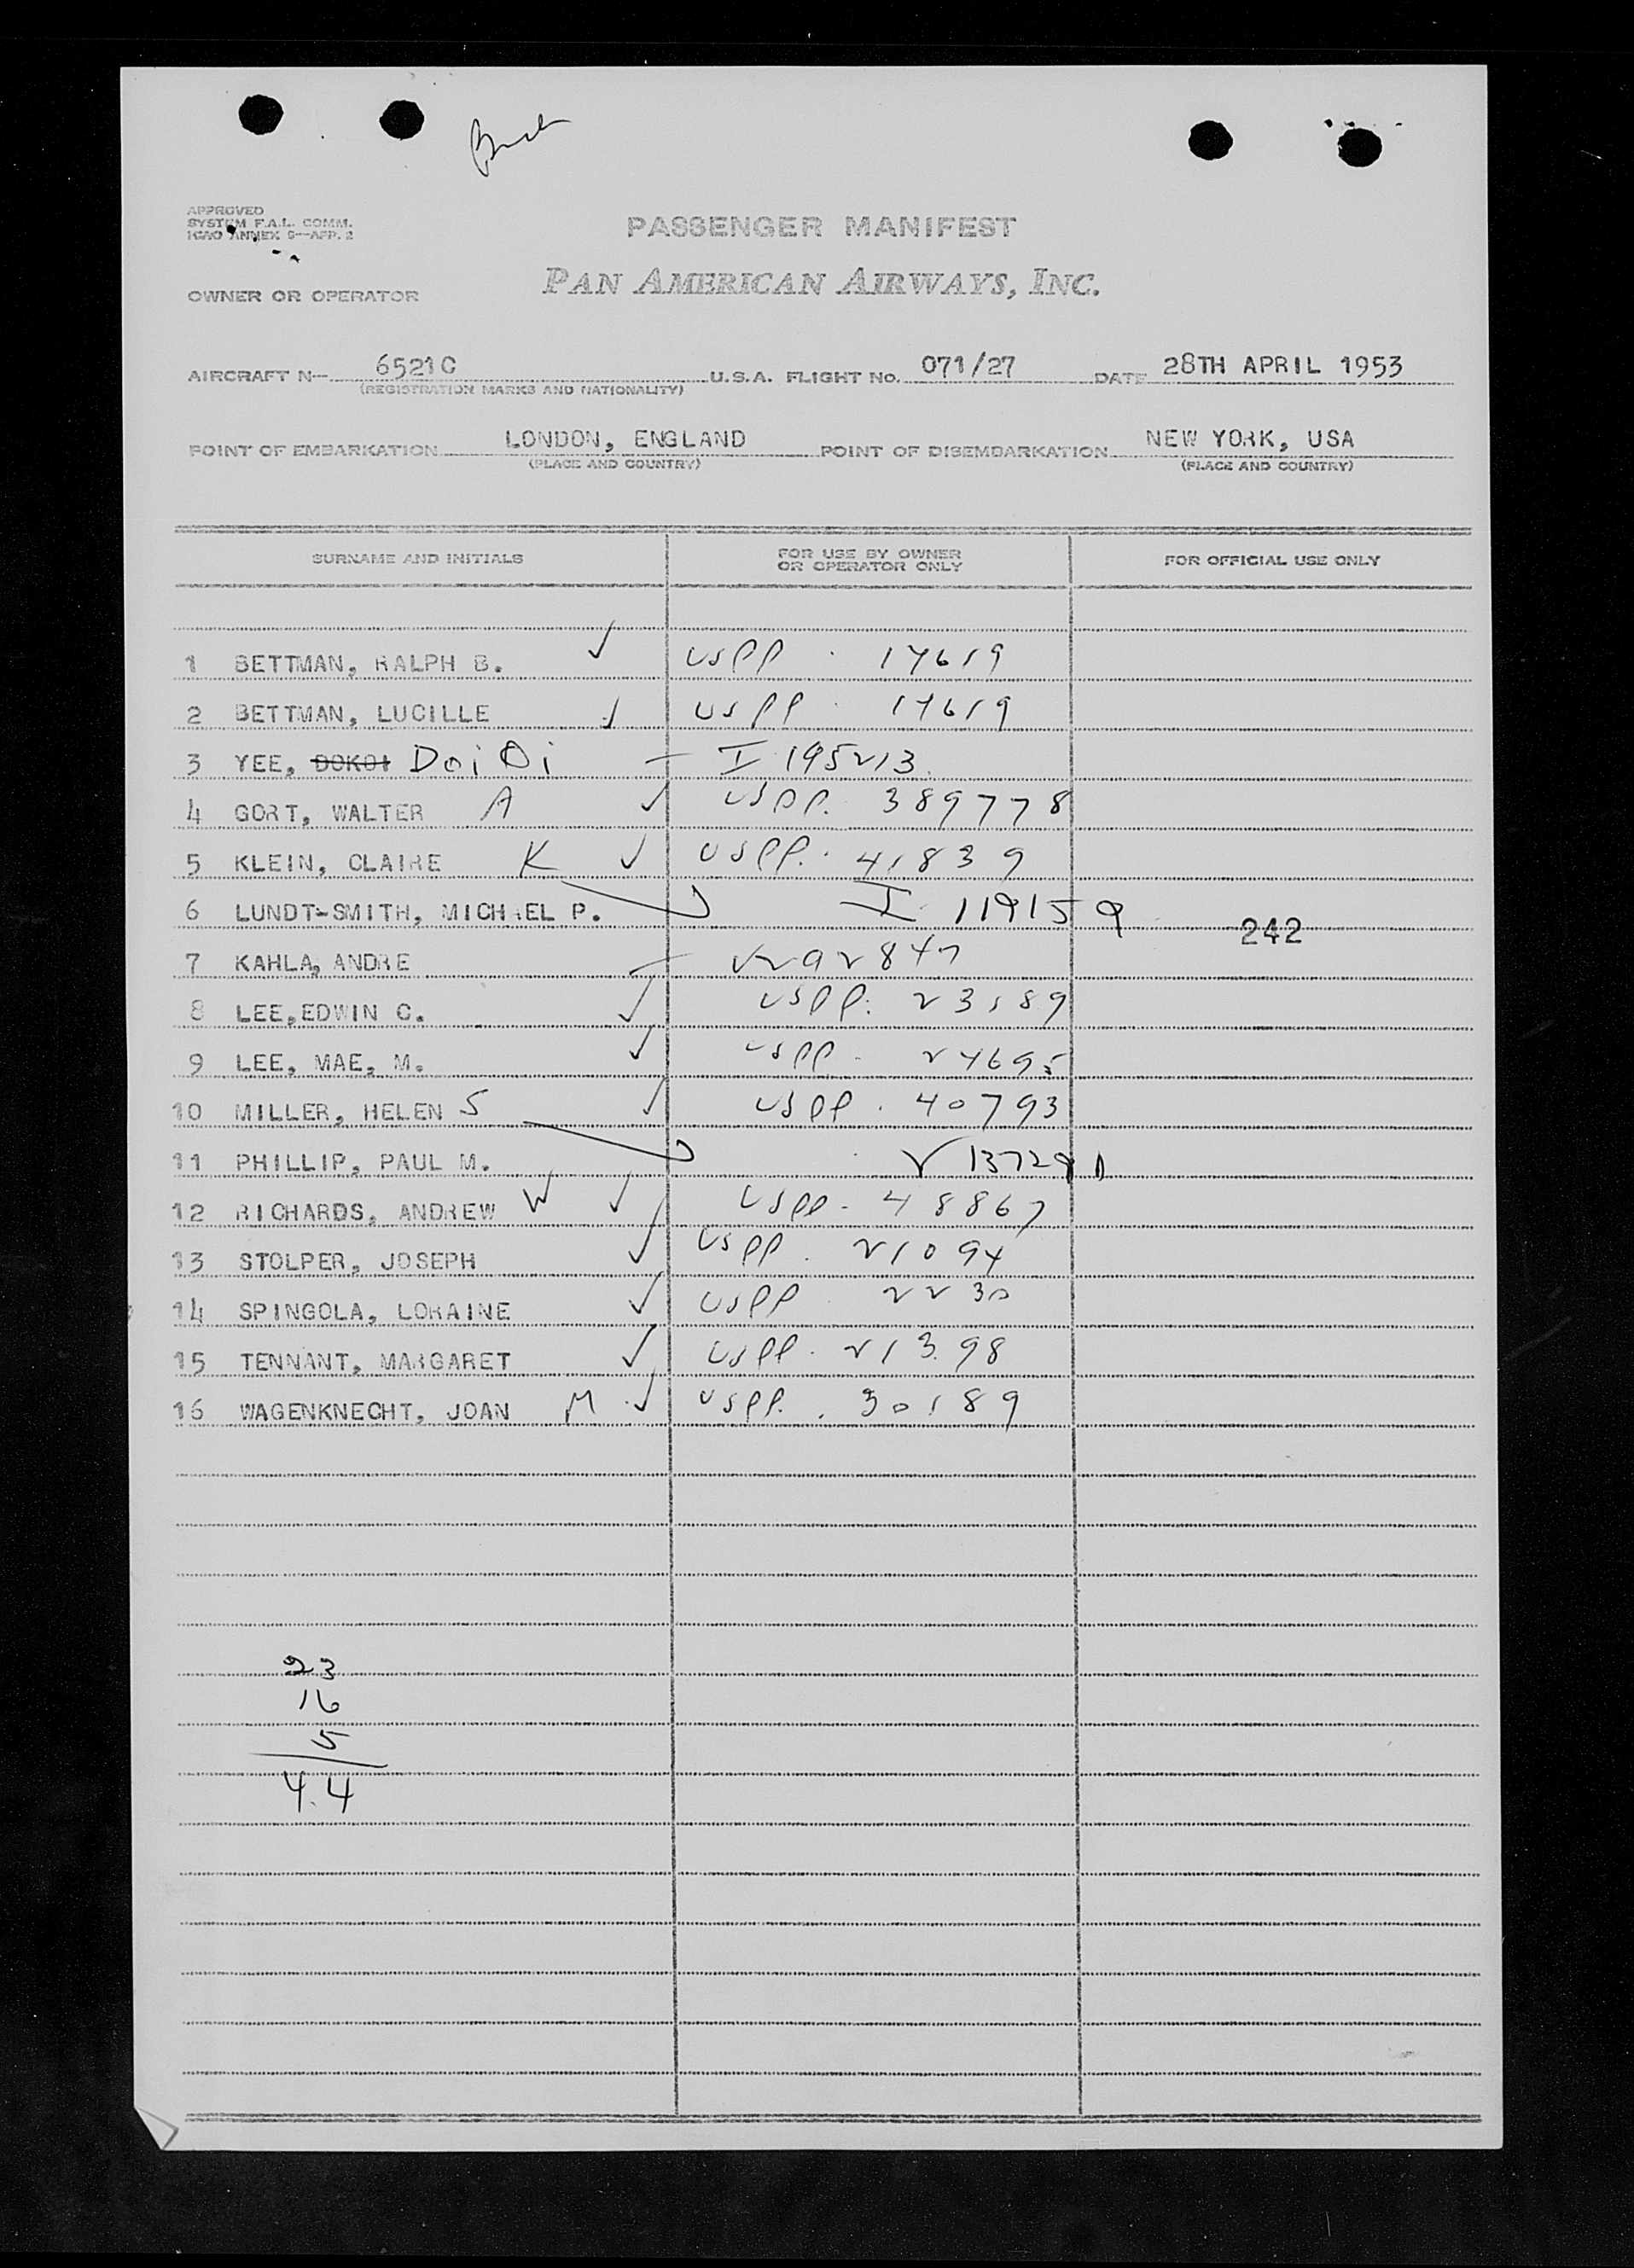 APPROVED
SYSTEM F.A.L. COMM.
ICAO ANNEX 9—APP. 2
PASSENGER MANIFEST
PAN AMERICAN AIRWAYS, INC.
OWNER OR OPERATOR
AIRCRAFT N— 6521C U.S.A. FLIGHT NO. 071/27 DATE 28TH APRIL 1953
(REGISTRATION MARKS AND NATIONALITY)
POINT OF EMBARKATION LONDON, ENGLAND POINT OF DISEMBARKATION NEW YORK, USA
(PLACE AND COUNTRY) (PLACE AND COUNTRY)
SURNAME AND INITIALS FOR USE BY OWNER OR OPERATOR ONLY FOR OFFICIAL USE ONLY
1 BETTMAN, RALPH B. ✓ USPP. 17619
2 BETTMAN, LUCILLE ✓ USPP. 17619
3 YEE, DOKOI Doi Oi — I 195213
4 GORT, WALTER A ✓ USPP. 389778
5 KLEIN, CLAIRE K ✓ USPP. 41839
6 LUNDT-SMITH, MICHAEL P. I 119159 242
7 KAHLA, ANDRE — V292847
8 LEE,EDWIN C. ✓ USPP. 23189
9 LEE, MAE, M. ✓ USPP. 24695
10 MILLER, HELEN S ✓ USPP. 40793
11 PHILLIP, PAUL M. V
12 RICHARDS, ANDREW W ✓ USPP. 48867
13 STOLPER, JOSEPH ✓ USPP. 21094
14 SPINGOLA, LORAINE ✓ USPP 2230
15 TENNANT, MARGARET ✓ USPP. 21398
16 WAGENKNECHT, JOAN M ✓ USPP. 30189
23
16
5
44